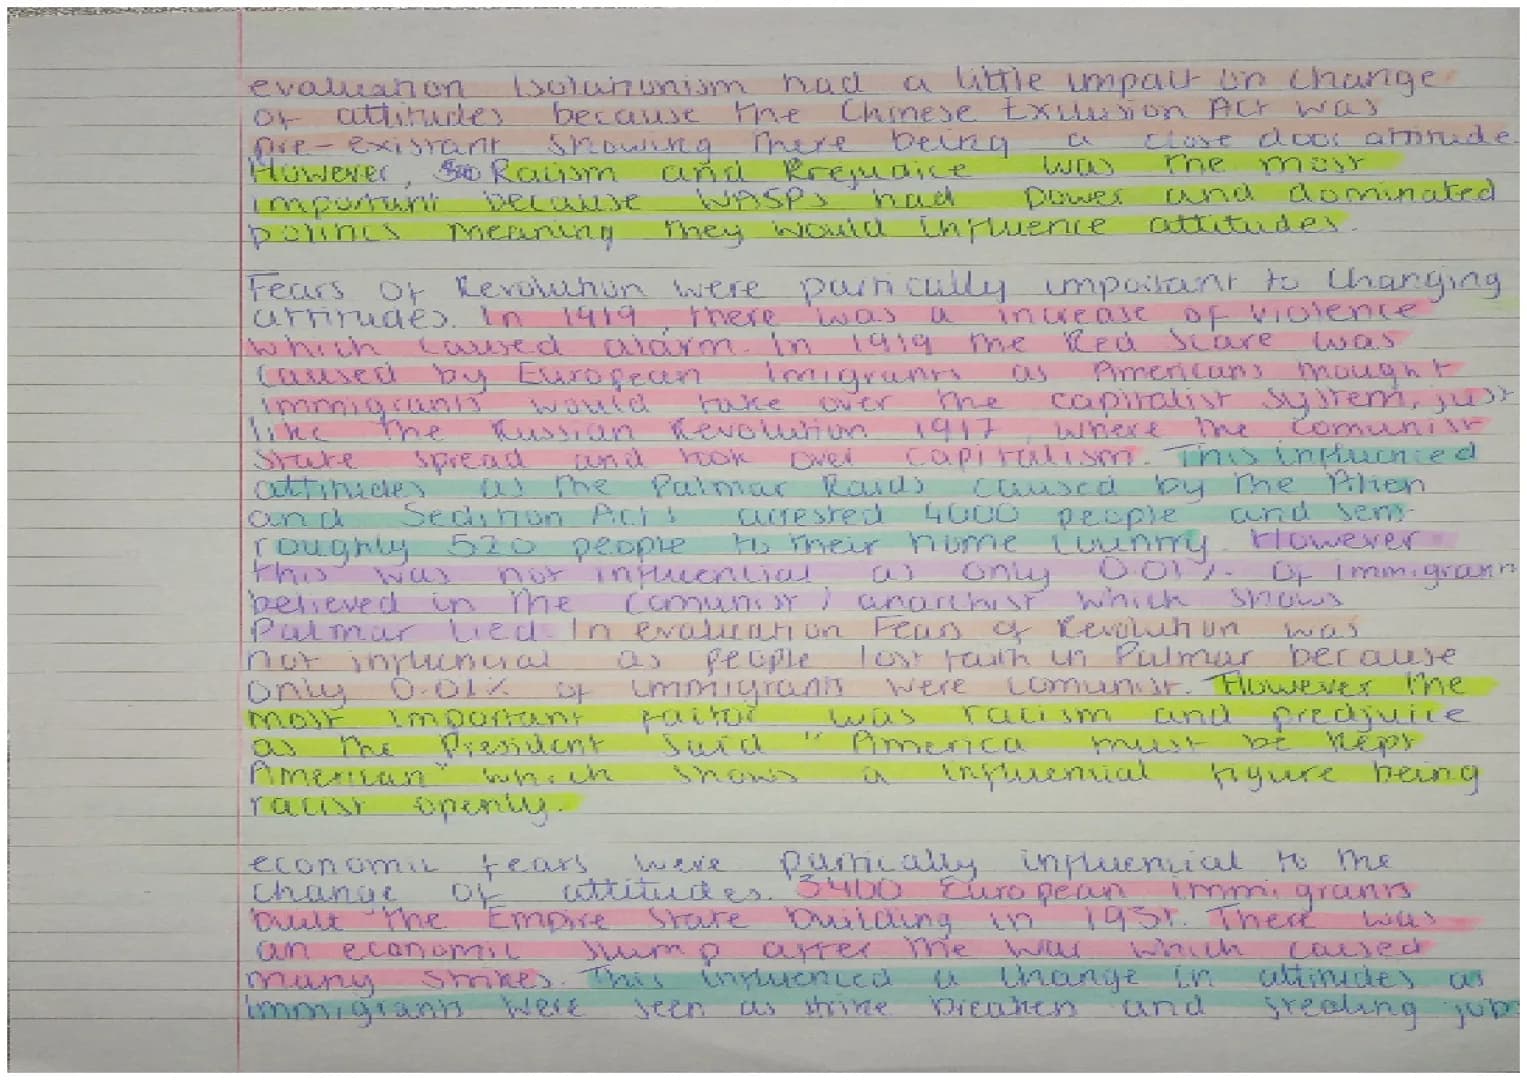 evaluation Isolationism had a little impact on change
of attitudes because the Chinese Exclusion Act was
pre-existant showing there being a close door attitude.
However, Racism and Prejudice was the most
important because WASPs had power and dominated
politics meaning they would influence attitudes.
Fears of Revolution were partically important to changing
attitudes. In 1919, there was a increase of violence
which caused alarm. In 1919 the Red Scare was
caused by European imigrants as Americans thought
immigrants would take over the capitalist system, just
like the Russian Revolution 1917, where the comunist
state spread and took over capitalism. This influenced
attitudes as the Palmar Raids caused by the Alien
and Sedition Acts arrested 4000 people and sent
roughly 520 people to their home country. However
this was not influential as only 0.01% of immigrants
believed in the comunist / anarchist which shows
Palmar lied. In evaluation Fears of Revolution was
not influncial as people lost faith in Palmar because
only 0.01% of immigrants were comunist. However the
most important factor was racism and predjuice
as the President said "America must be kept
American" which shows a influential figure being
racist openly.
economic fears were partically influential to the
change of attitudes. 3400 European immigrants
built the Empire State building in 1931. There was
an economic slump after the war which caused
many strikes. This influenced a change in attitudes as
immigrants were seen as strike breakers and stealing jobs